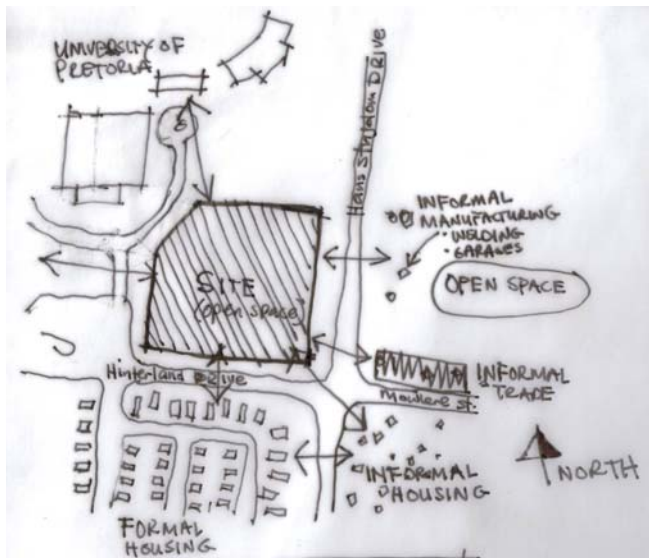 UNIVERSITY OF
PRETORIA
Hans Strijdom DRIVE
INFORMAL
MANUFACTURING
• WELDING
• GARAGES
OPEN SPACE
SITE
(open space)
Hinterland DRIVE
INFORMAL
TRADE
St.
INFORMAL
HOUSING
NORTH
FORMAL
HOUSING